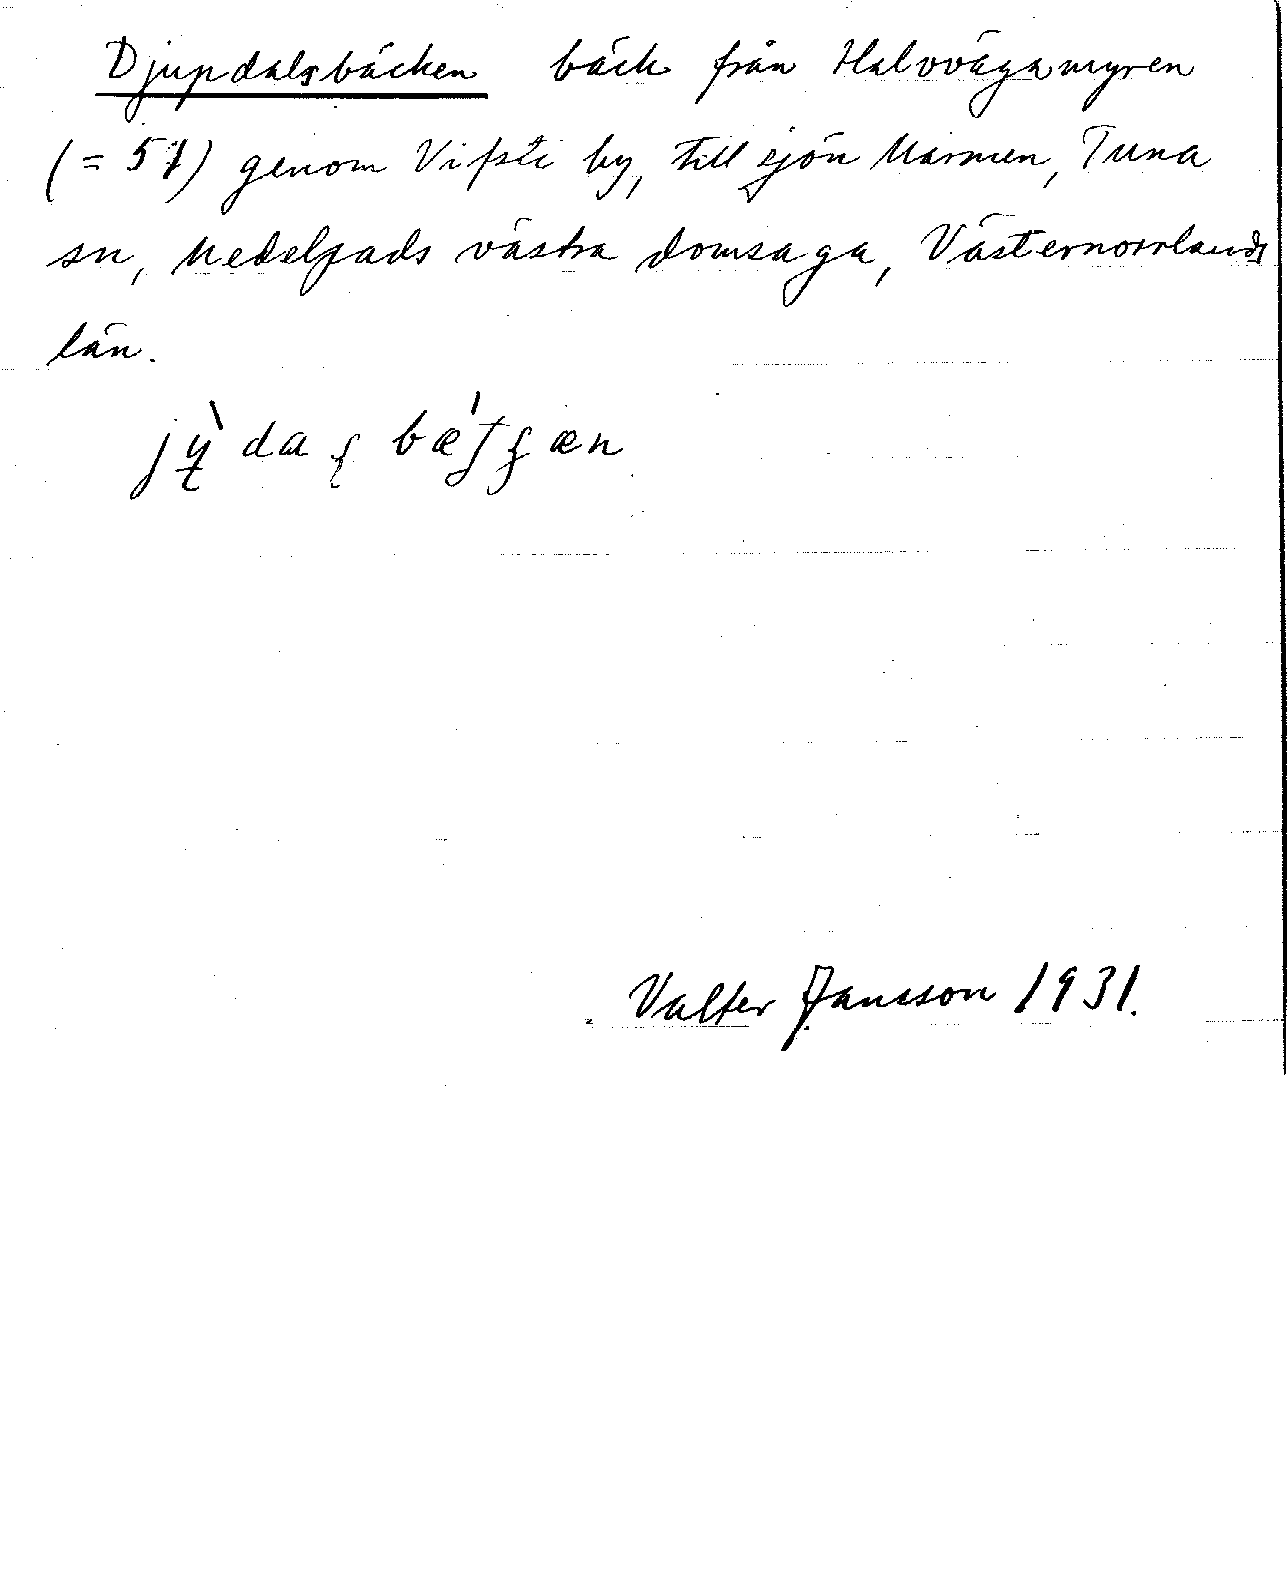 Djupdalsbäcken bäck från Halvvägamyren
(= 57) genom Vifsta by, till sjön Marmen, Tuna
sn, Medelpads västra domsaga, Västernorrlands
län.
Valter Jansson 1931.